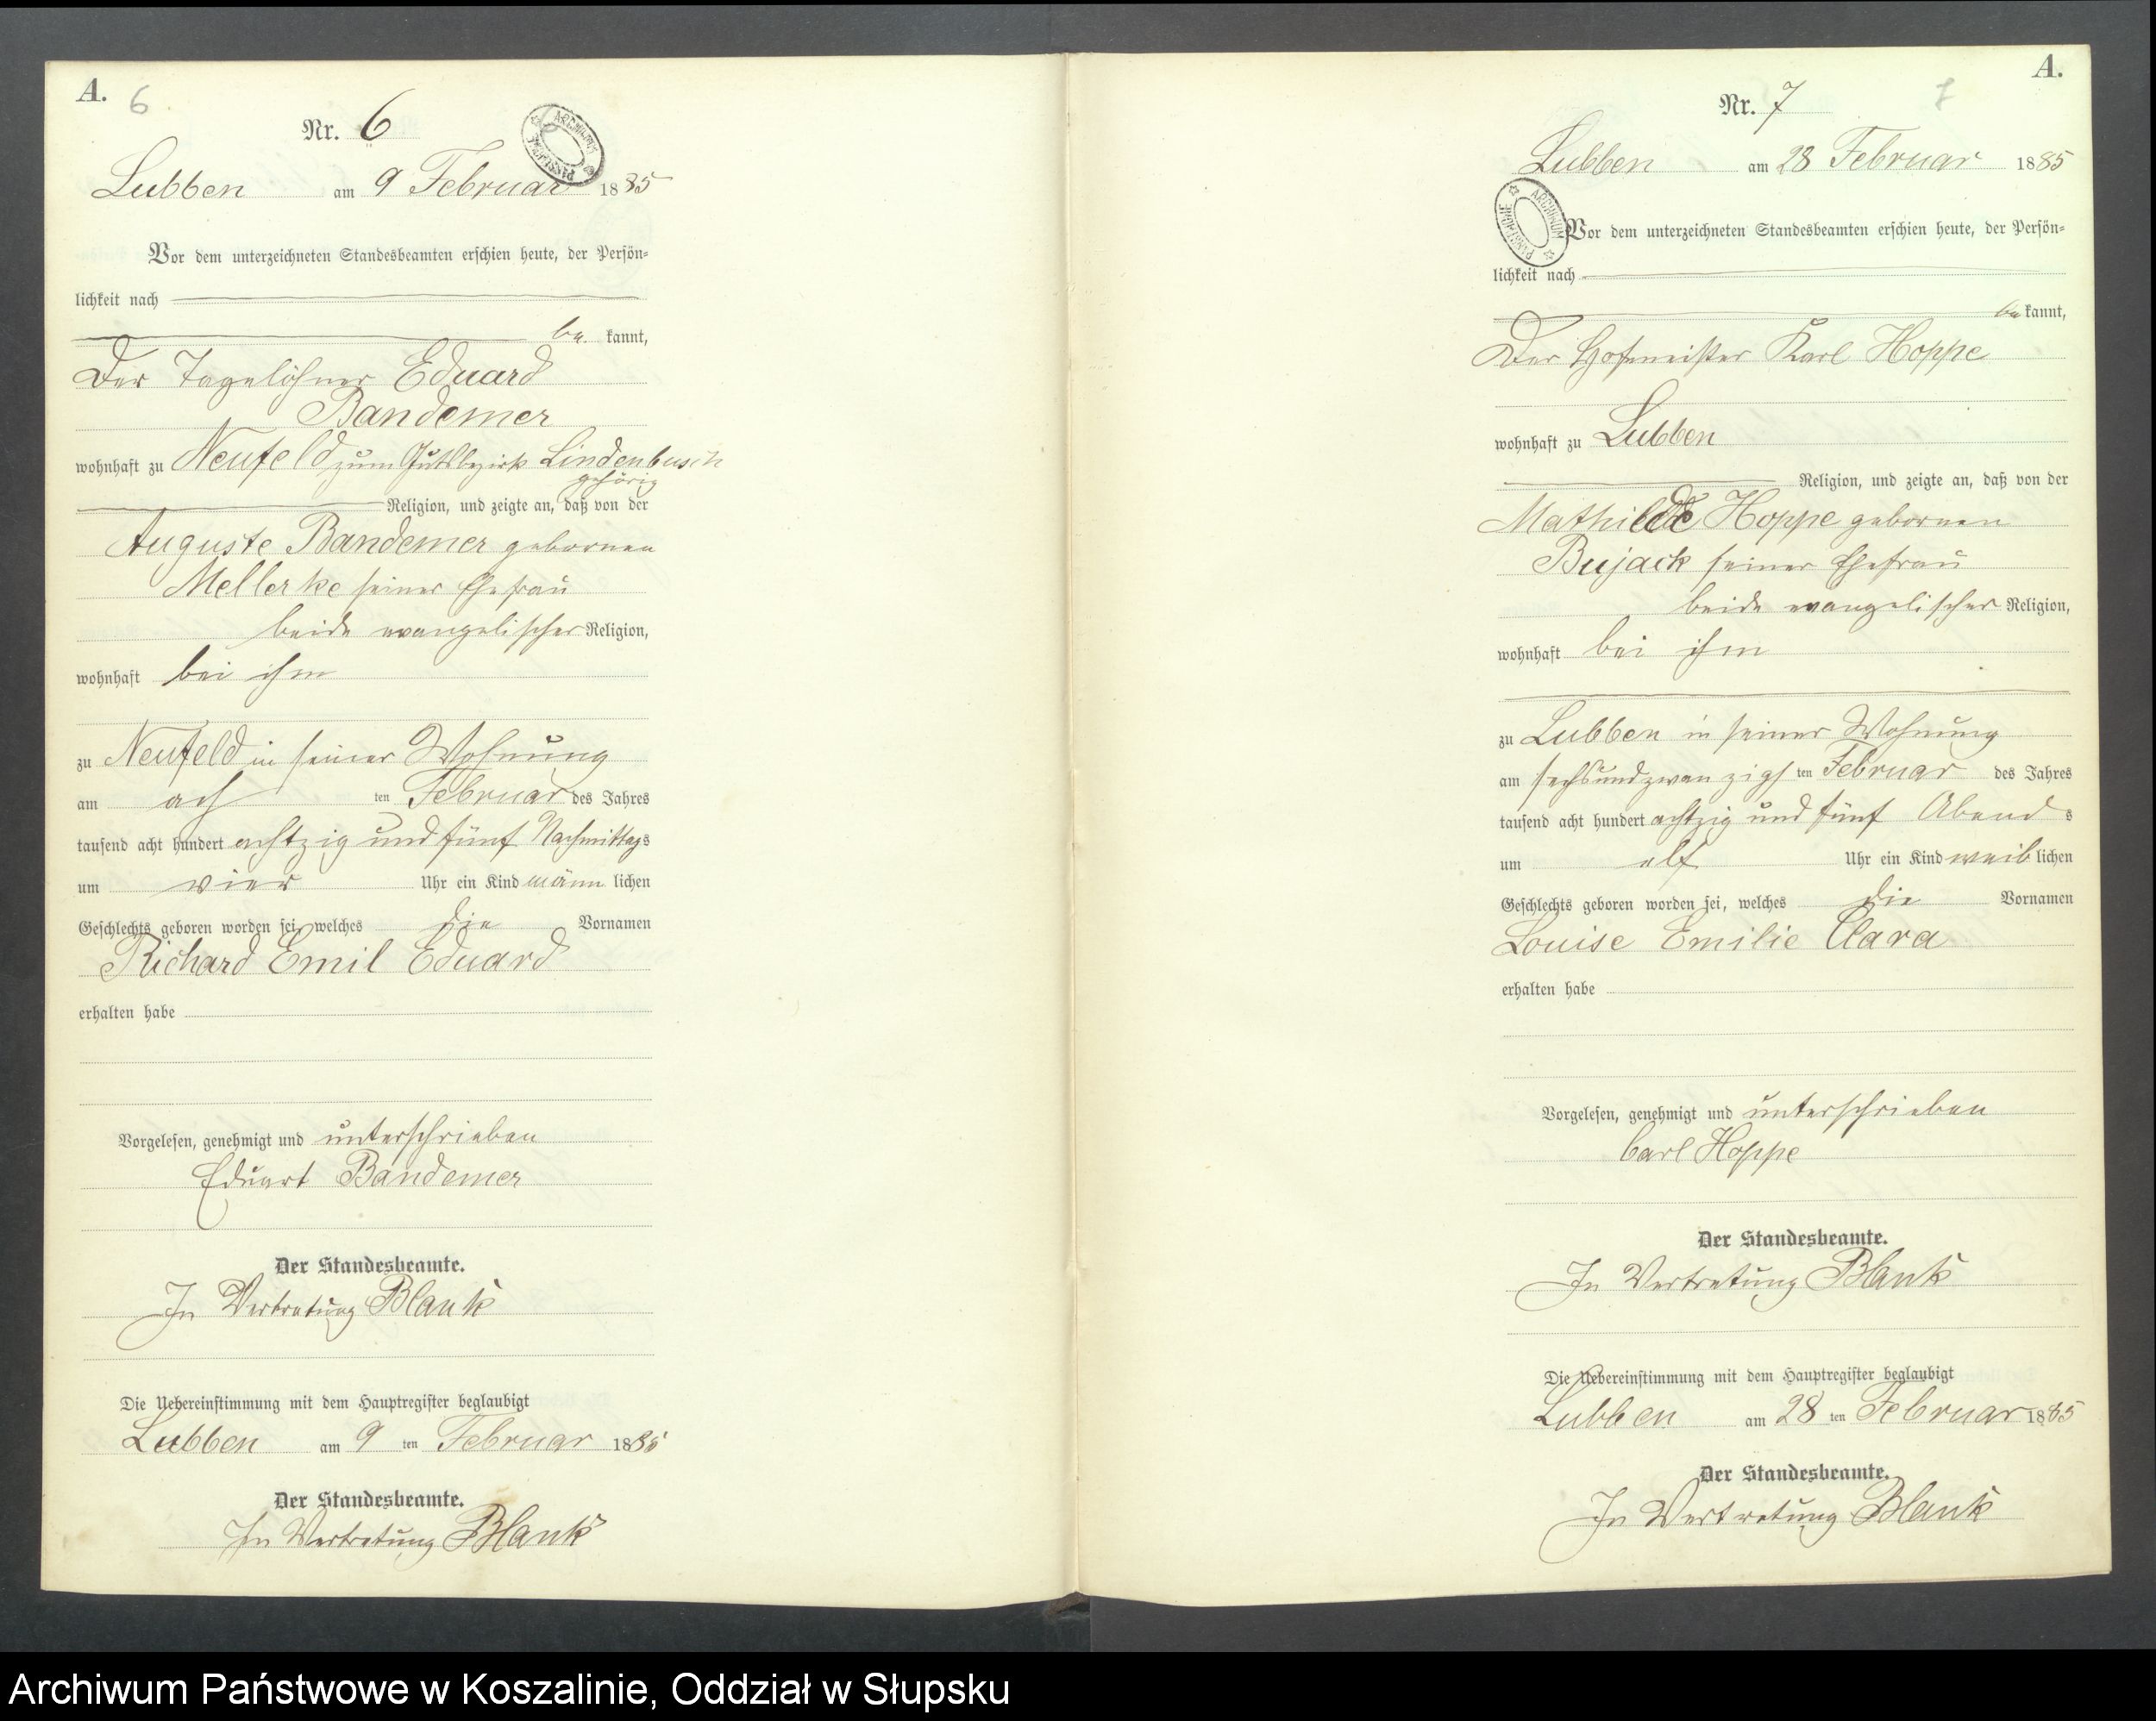 A. 6
Nr. 6
ARCHIWUM PAŃSTWOWE
Lubben am 9 Februar 1885
Vor dem unterzeichneten Standesbeamten erschien heute, der Persön=
lichkeit nach
be kannt,
Der Tagelöhner Eduard
Bandemer
wohnhaft zu Neufeld zum Gutsbezirk Lindenbusch
gehörig
Religion, und zeigte an, daß von der
Auguste Bandemer gebornen
Mellerke seiner Ehefrau
beide evangelischer Religion,
wohnhaft bei ihm
zu Neufeld in seiner Wohnung
am ach ten Februar des Jahres
tausend acht hundert achtzig und fünf Nachmittags
um vier Uhr ein Kind männ lichen
Geschlechts geboren worden sei, welches die Vornamen
Richard Emil Eduard
erhalten habe
Vorgelesen, genehmigt und unterschrieben
Eduart Bandemer
Der Standesbeamte.
In Vertretung Blank
Die Uebereinstimmung mit dem Hauptregister beglaubigt
Lubben am 9 ten Februar 1885
Der Standesbeamte.
In Vertretung Blank
A.
Nr. 7 7
Lubben am 28 Februar 1885
ARCHIWUM PAŃSTWOWE
Vor dem unterzeichneten Standesbeamten erschien heute, der Persön=
lichkeit nach
be kannt,
Der Hofmeister Karl Hoppe
wohnhaft zu Lubben
Religion, und zeigte an, daß von der
Mathilde Hoppe gebornen
Bujack seiner Ehefrau
beide evangelischer Religion,
wohnhaft bei ihm
zu Lubben in seiner Wohnung
am sechsundzwanzigs ten Februar des Jahres
tausend acht hundert achtzig und fünf Abend s
um elf Uhr ein Kind weib lichen
Geschlechts geboren worden sei, welches die Vornamen
Louise Emilie Clara
erhalten habe
Vorgelesen, genehmigt und unterschrieben
Carl Hoppe
Der Standesbeamte.
In Vertretung Blank
Die Uebereinstimmung mit dem Hauptregister beglaubigt
Lubben am 28 ten Februar 1885
Der Standesbeamte.
In Vertretung Blank
Archiwum Państwowe w Koszalinie, Oddział w Słupsku